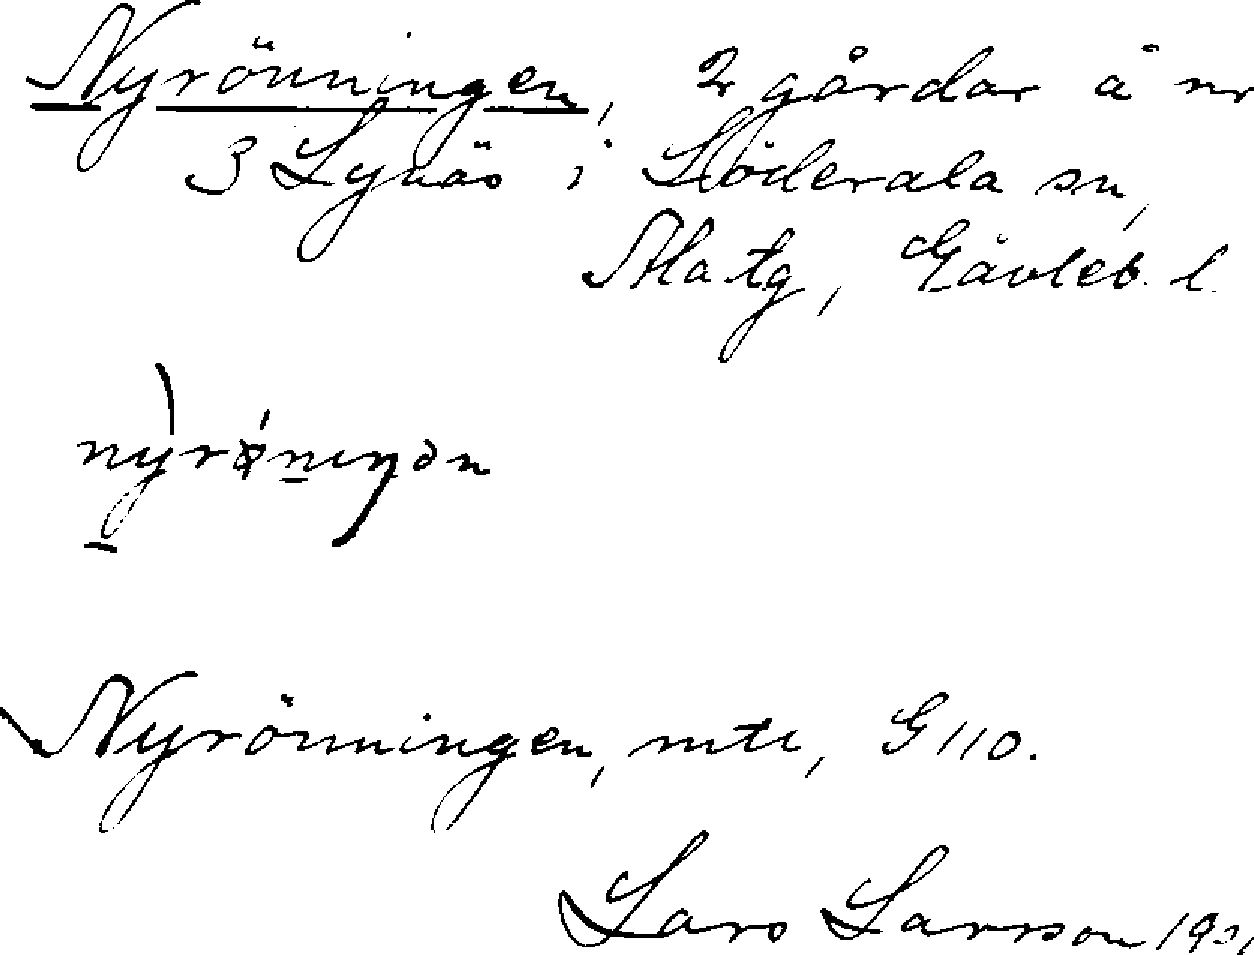 Nyrönningen, 2 gårdar å nr
3 Lynäs i Söderala sn,
Ala tg, Gävleb. l.
Nyrönningen, mtl, G 110.
Lars Larsson